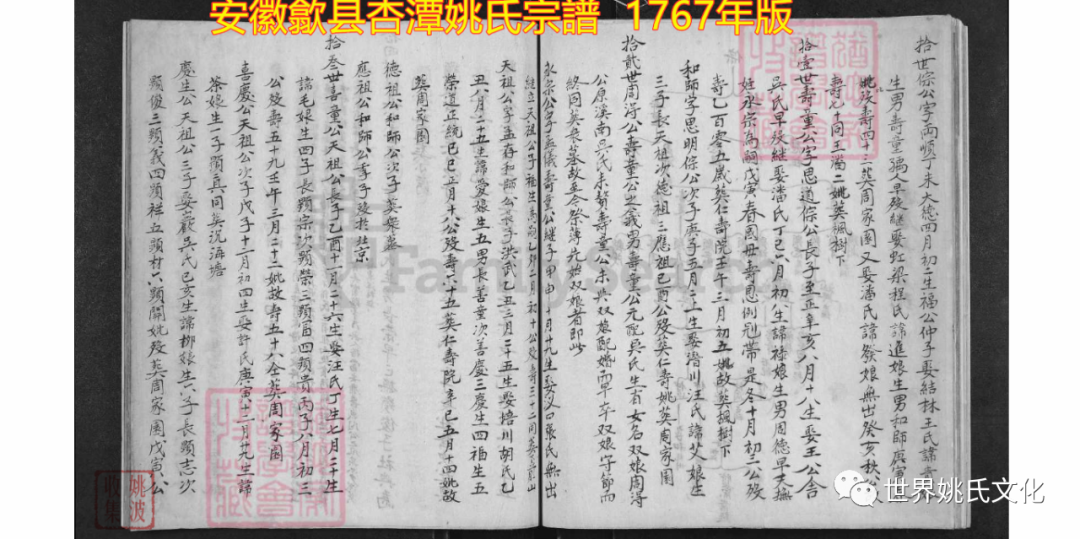 安徽歙县杏潭姚氏宗譜 1767年版
拾世保公字雨順丁未大德四月初二生福公仲子娶結林王氏諱
生男壽童孺人早殁継娶虹梁程氏諱進娘生男和師庚寅
妣殁壽四十三葬周家園又娶潘氏諱癸娘無出癸亥秋公
壽七十同王潘二妣葬楓樹下
拾壹世壽童公字思道保公長子至正辛亥八月十八生娶王公舍
吳氏早殁継娶潘氏丁巳六月初八生諱祿娘生男周德早夭撫
姪永宗為嗣戊寅春國母壽恩例冠帶是冬十月初二公殁
壽乙百零五歲葬仁壽院壬午三月初五妣故葬楓樹下
和師字思明保公次子庚子五月二上生娶潛川汪氏諱父娘生
三子長天祖次德祖三應祖己酉公殁葬仁壽妣葬周家園
拾貳世周得公壽童公之義男壽童公元配吳氏生有女名双娘周得
公原溪南吳氏來贅壽童公未與双娘配婚而早卒双娘守節而
終同葬朱墓故至今祭簿先始双娘者即此
永宗公字孟儀壽童公継子甲申十月十九生娶汊口張氏無出
継立天祖公子福生為嗣乙卯二月初十公殁壽三十二同葬
天祖公字孟存和師公長子洪武乙丑三月二十五生娶梧川胡氏乙
丑八月二十五生諱愛娘生五男長善童次善慶三慶生四福生五
榮道正統己巳正月十八公殁壽六十五葬仁壽院辛巳五月十四妣故
葬周家園
德祖公和師公次子葬
應祖公和師公季子殁扵北京
拾叁世善童公天祖公長子己酉十月二十六生娶汪氏丁生七月二十生
諱毛娘生四子長顯宗次顯榮三顯富四顯貴丙子八月初三
公殁壽五十九壬午三月二十二妣故寿五十八仝葬周家園
喜慶公天祖公次子戊子十一月初四生娶許氏庚寅十二月廿九生諱
茶娘生一子顯真同葬沉海塘
慶生公天祖公三子娶巖吳氏己亥生諱娜娘生六子長顯志次
顯俊三顯義四顯社五顯材六顯開妣殁葬周家園戊寅公
FamilySearch
姚波收集
世界姚氏文化